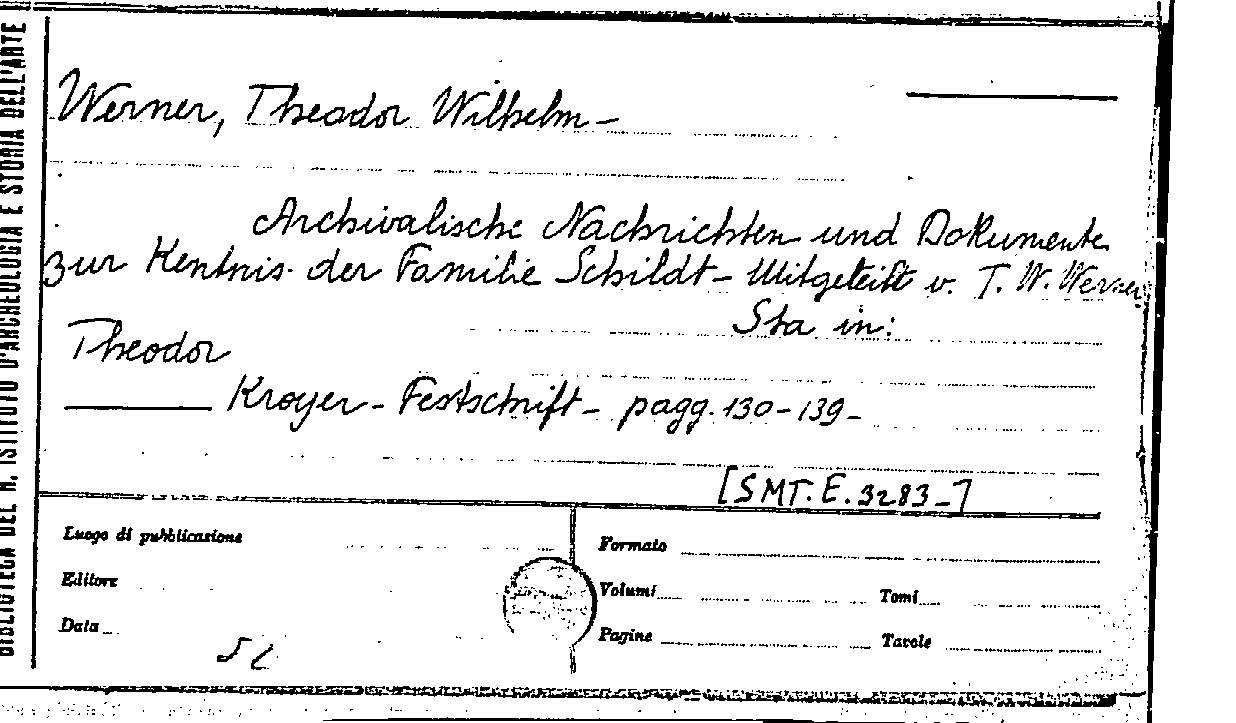 BIBLIOTECA DEL R. ISTITUTO D'ARCHEOLOGIA E STORIA DELL'ARTE
Werner, Theodor Wilhelm -
Archivalische Nachrichten und Dokumente
zur Kentnis der Familie Schildt - Mitgeteilt v. T. W. Werner
Sta in:
Theodor
Kroyer - Festschrift - pagg. 130-139 -
[SMT. E. 3283-]
Luogo di pubblicazione
Formato
Editore
Volumi
Tomi
Data
Pagine
Tavole